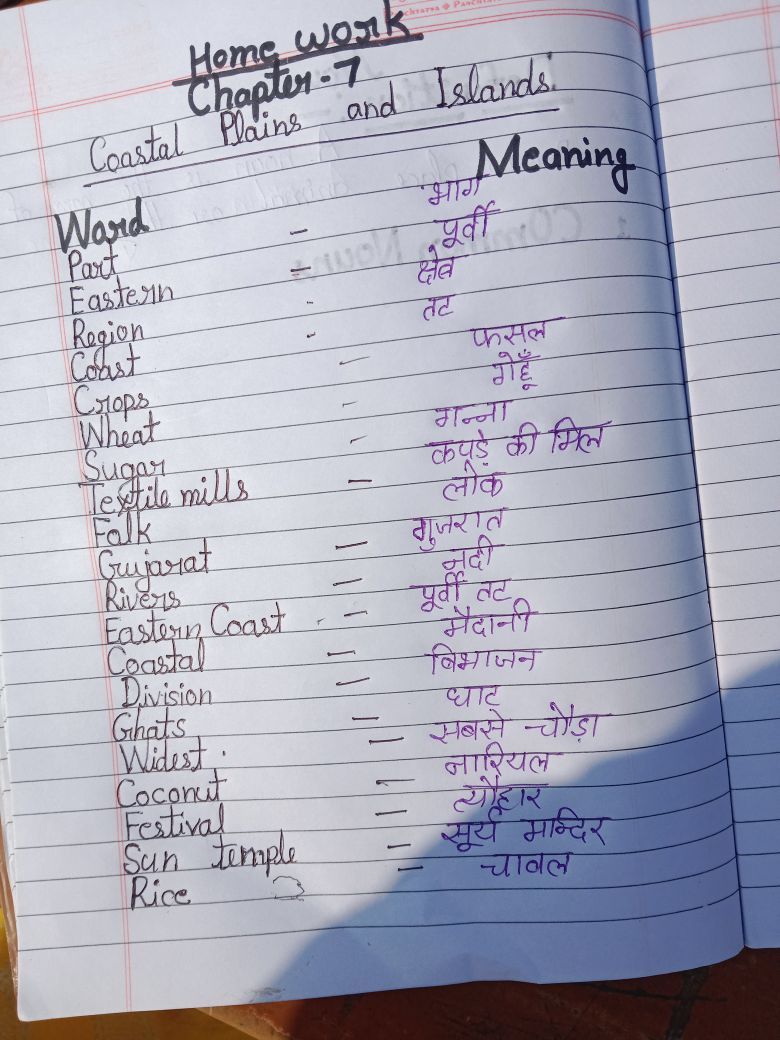 Home work
Chapter-7
Coastal Plains and Islands
Word Meaning
Part - भाग
Eastern - पूर्वी
Region - क्षेत्र
Coast - तट
Crops - फसल
Wheat - गेहूँ
Sugar - गन्ना
Textile mills - कपड़े की मिल
Folk - लोक
Gujarat - गुजरात
Rivers - नदी
Eastern Coast - पूर्वी तट
Coastal - मैदानी
Division - विभाजन
Ghats - घाट
Widest - सबसे चौड़ा
Coconut - नारियल
Festival - त्यौहार
Sun temple - सूर्य मन्दिर
Rice - चावल